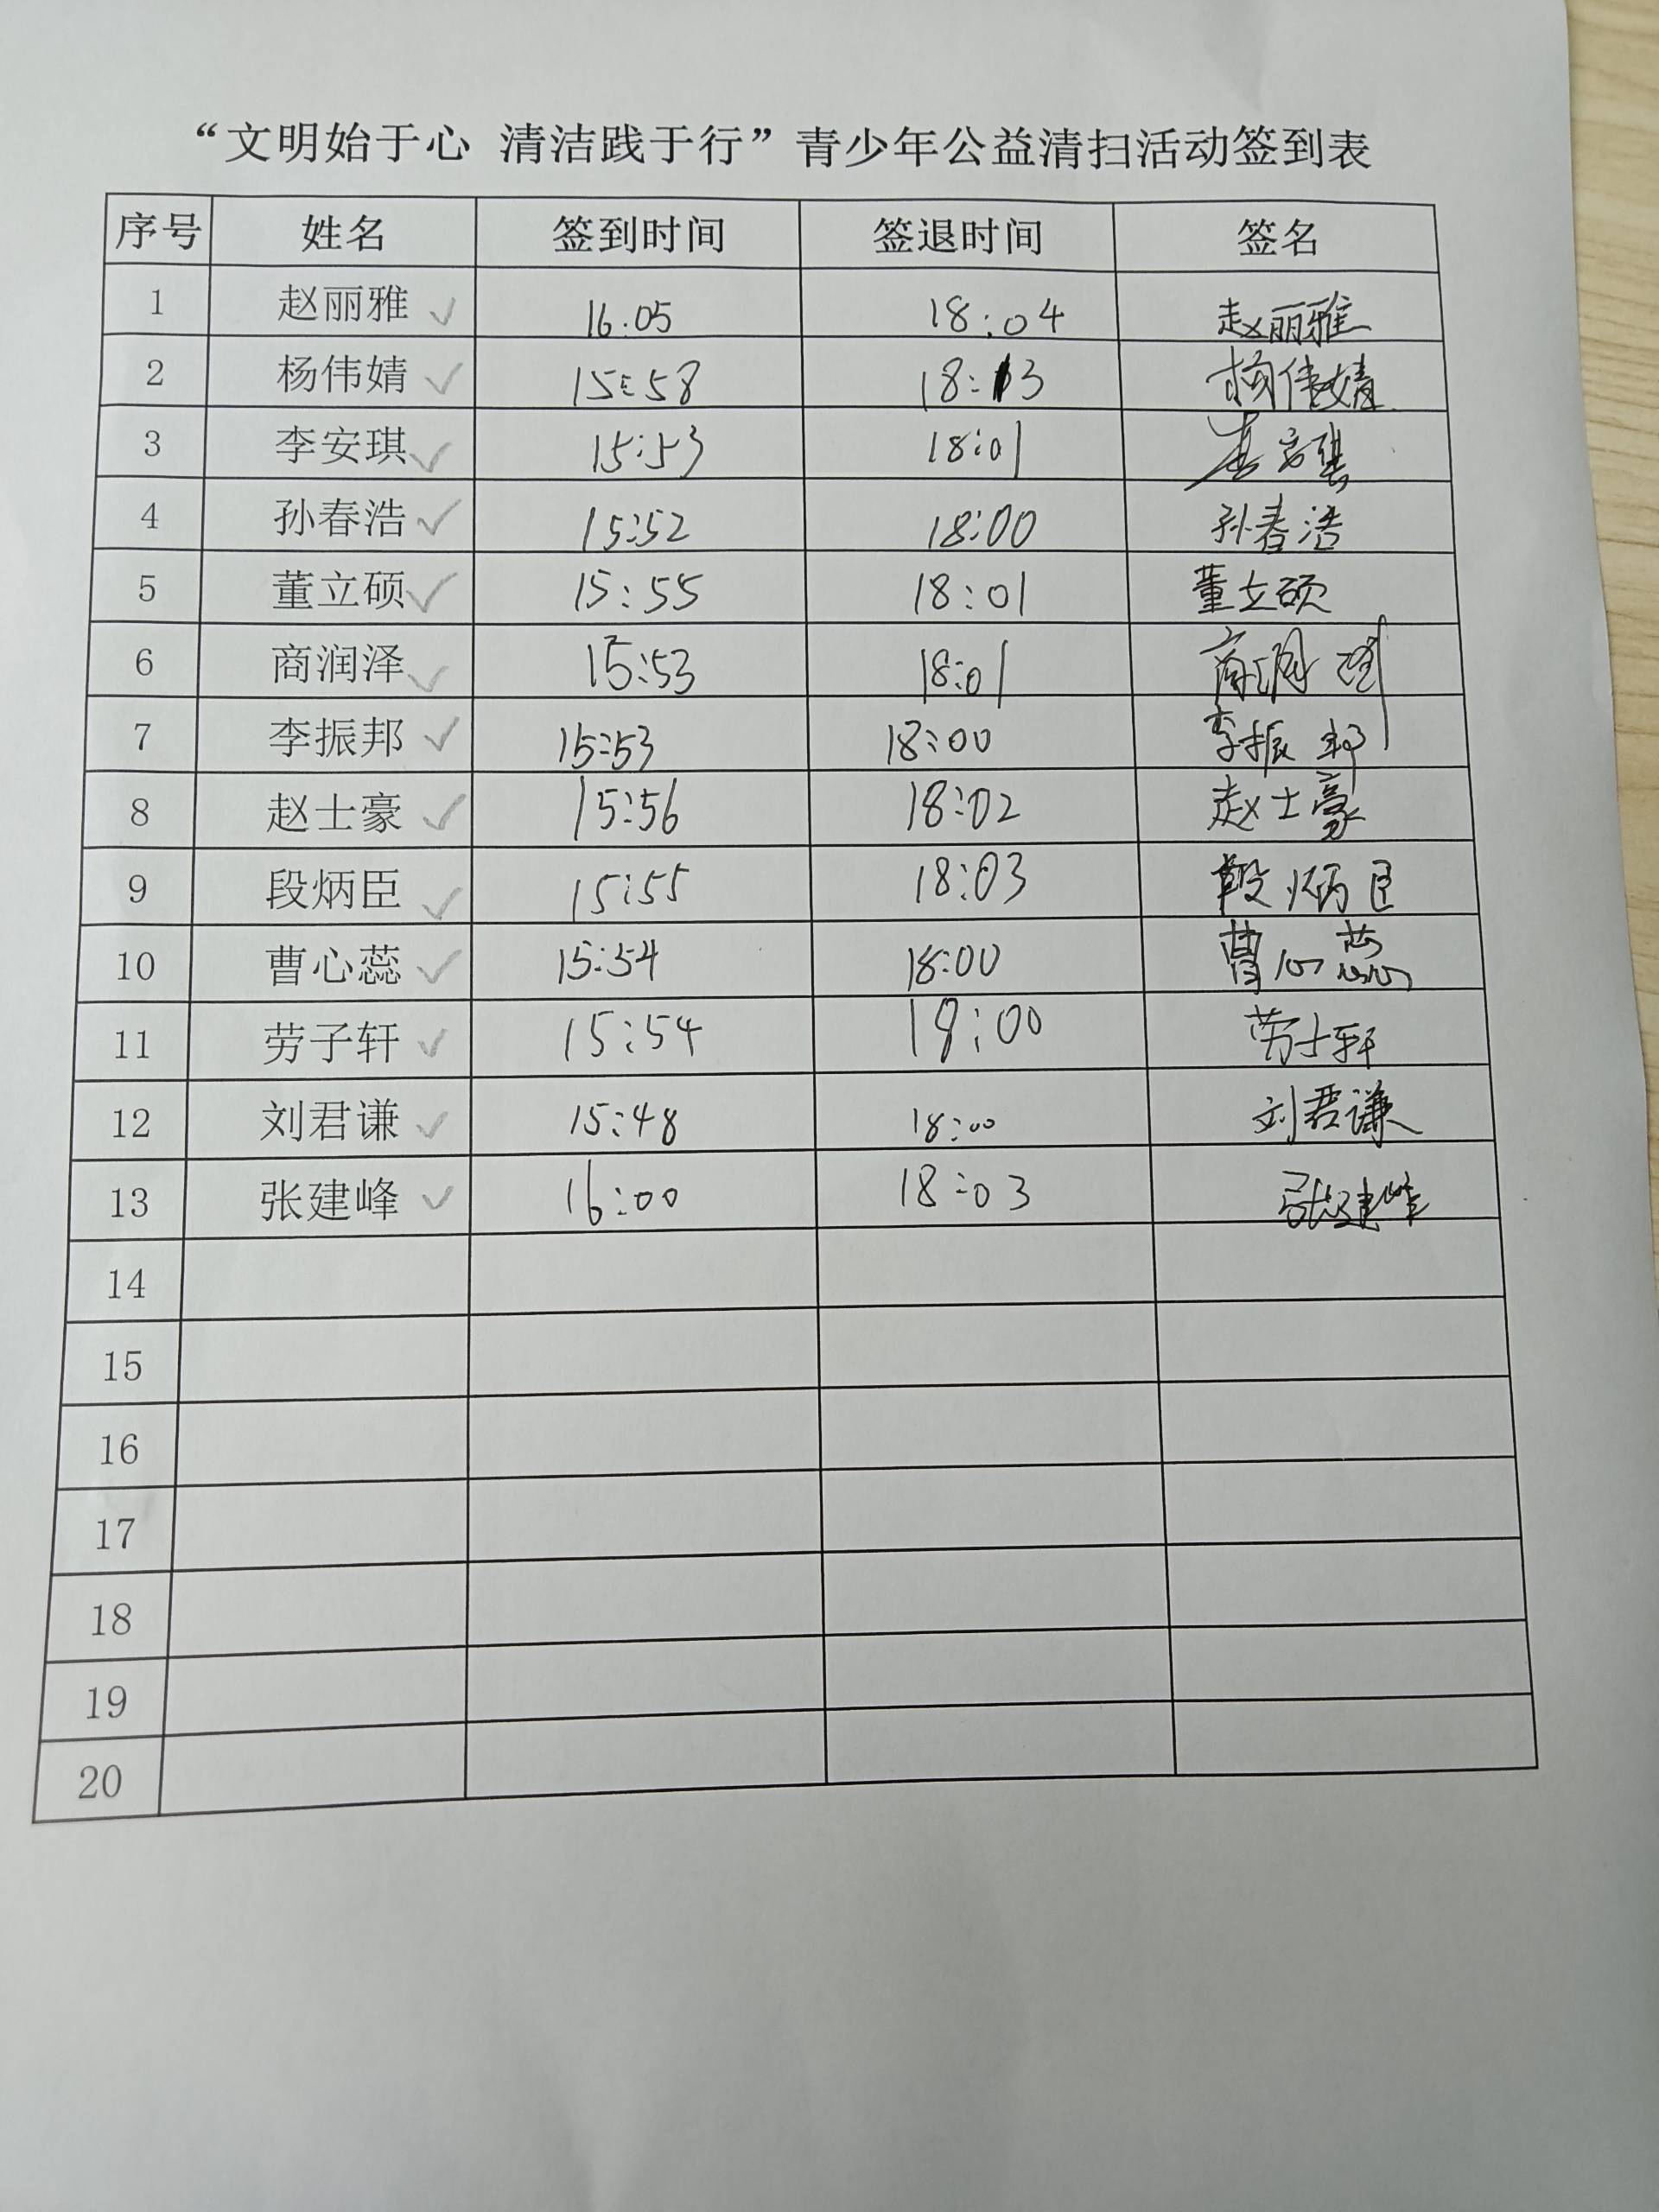 “文明始于心 清洁践于行”青少年公益清扫活动签到表
序号 姓名 签到时间 签退时间 签名
1 赵丽雅 ✓ 16.05 18:04 赵丽雅
2 杨伟婧 ✓ 15:58 18:13 杨伟婧
3 李安琪 ✓ 15:53 18:01 李安琪
4 孙春浩 ✓ 15:52 18:00 孙春浩
5 董立硕 ✓ 15:55 18:01 董立硕
6 商润泽 ✓ 15:53 18:01 商润泽
7 李振邦 ✓ 15:53 18:00 李振邦
8 赵士豪 ✓ 15:56 18:02 赵士豪
9 段炳臣 ✓ 15:55 18:03 段炳臣
10 曹心蕊 ✓ 15:54 18:00 曹心蕊
11 劳子轩 ✓ 15:54 18:00 劳子轩
12 刘君谦 ✓ 15:48 18:00 刘君谦
13 张建峰 ✓ 16:00 18:03 张建峰
14
15
16
17
18
19
20